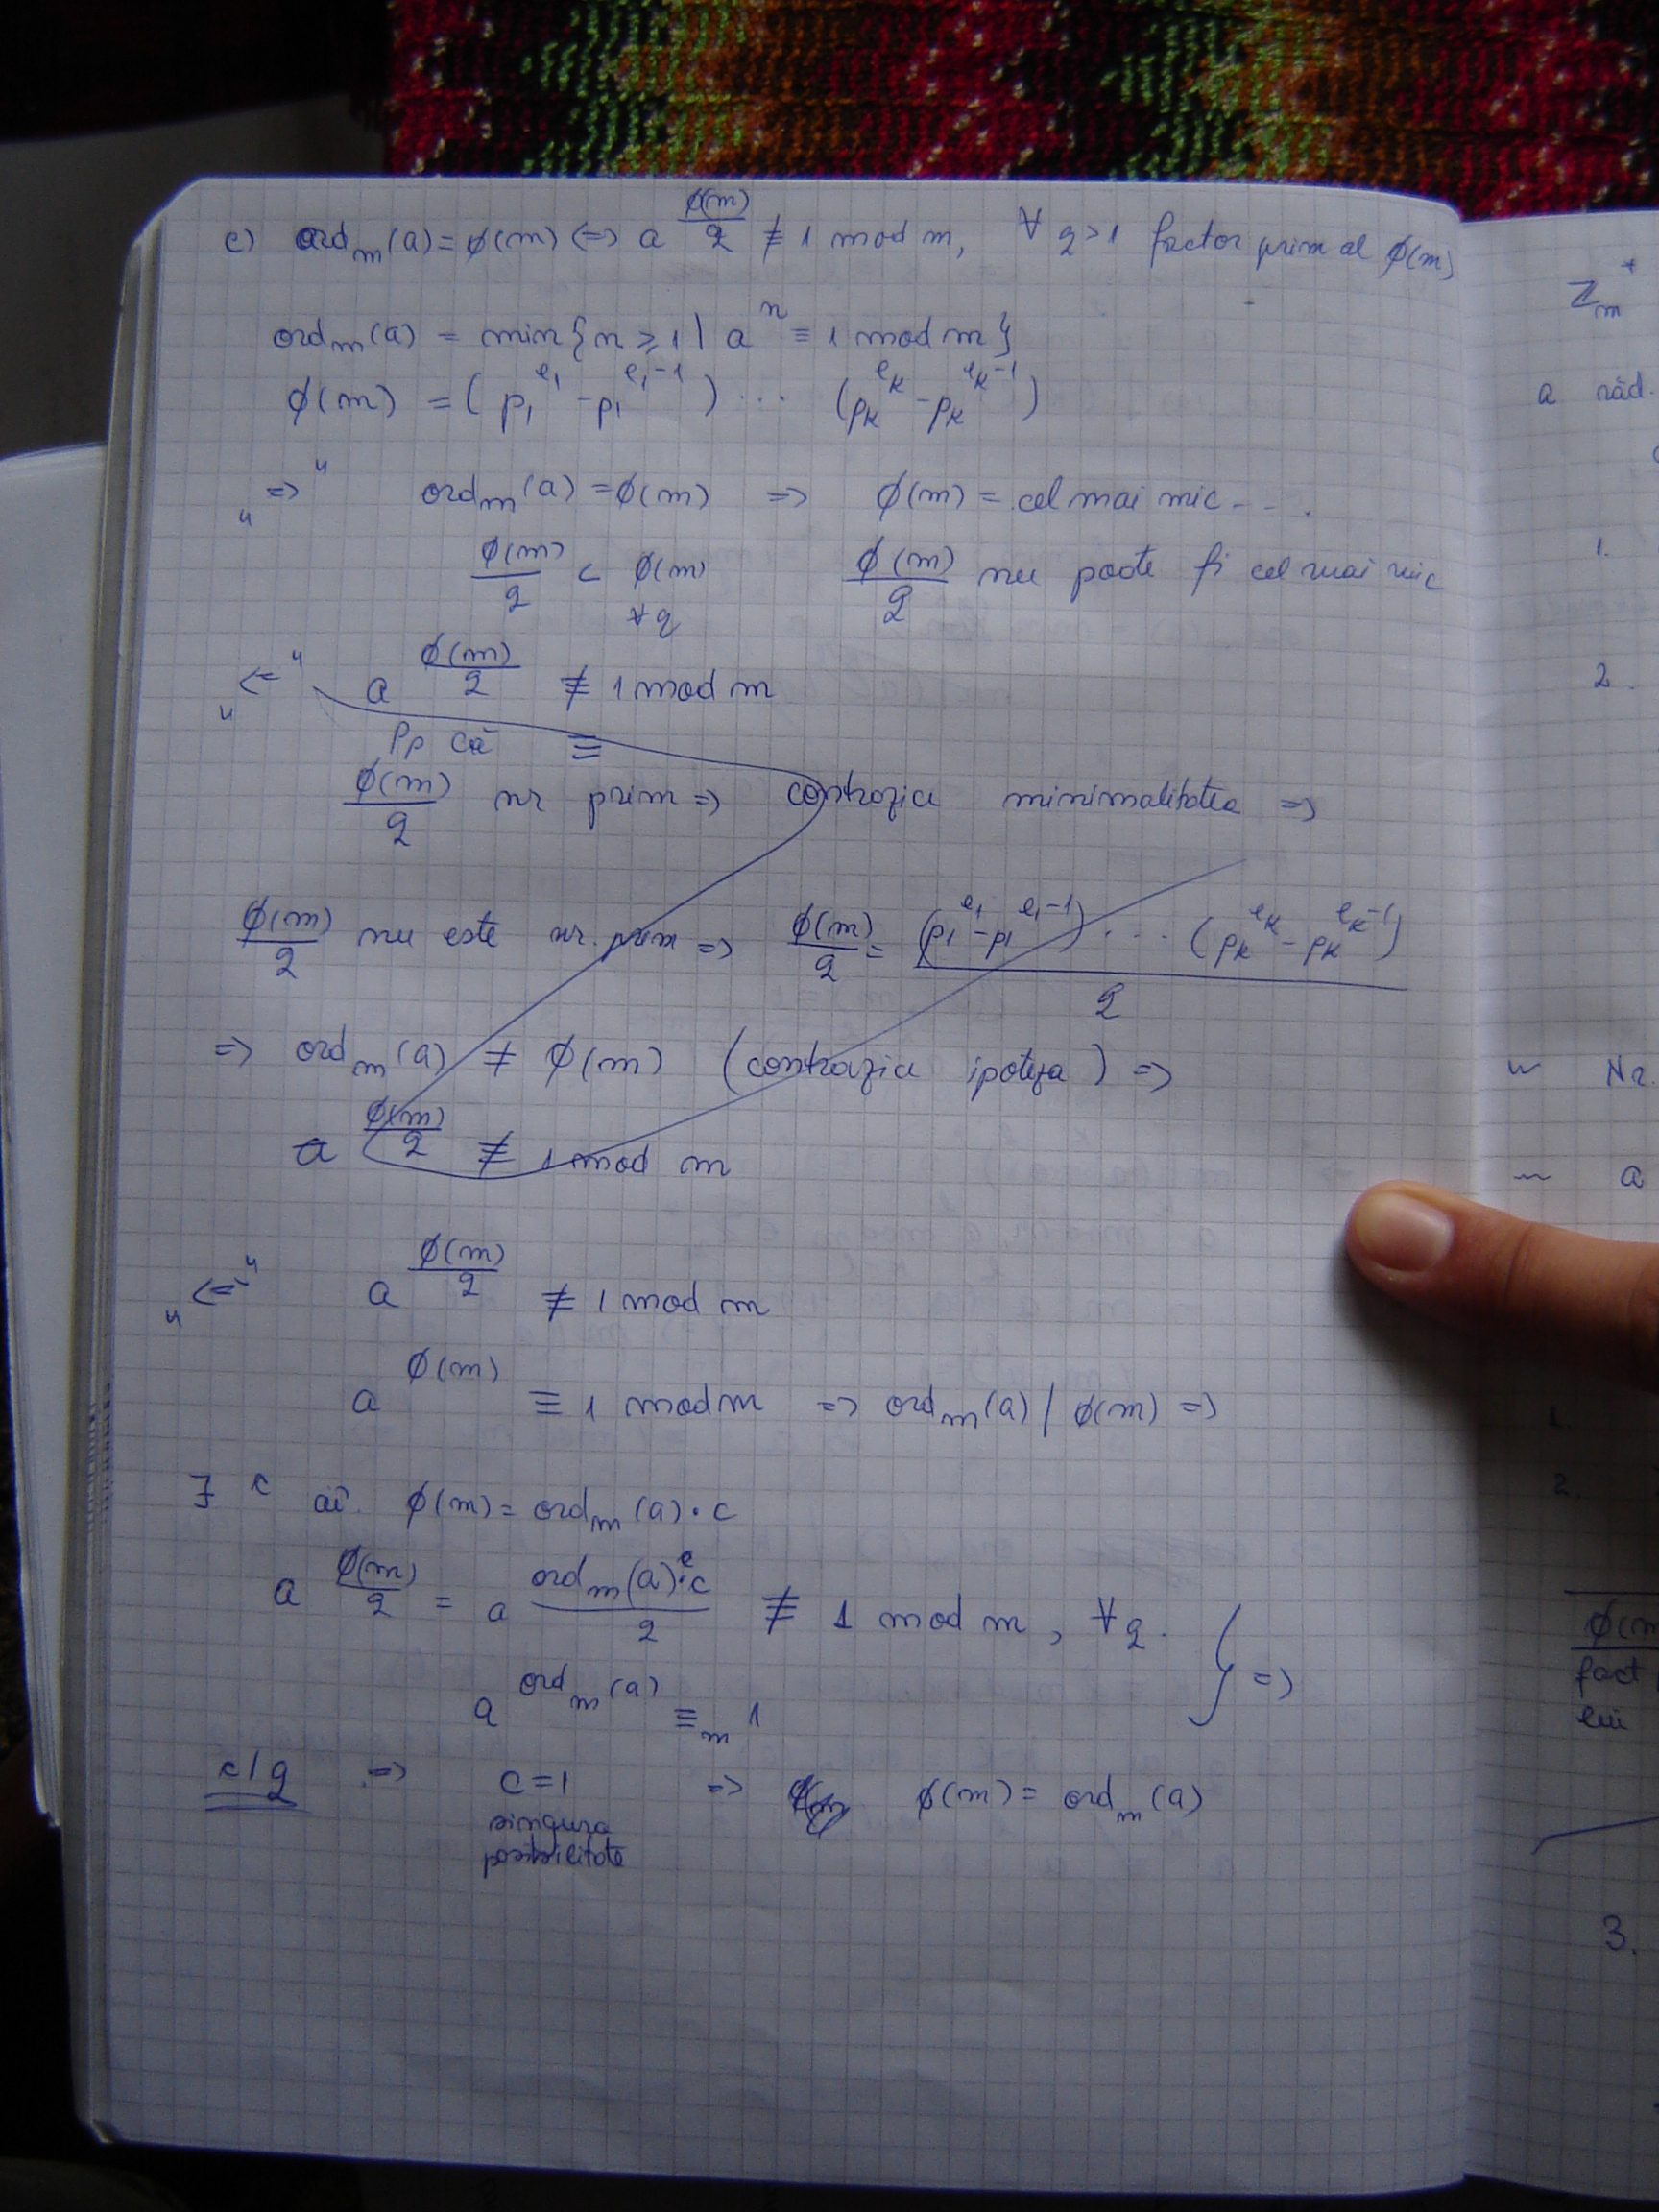 c) ord_m(a) = ϕ(m) <=> a^(ϕ(m)/q) ≢ 1 mod m, ∀ q > 1 factor prim al ϕ(m)
ord_m(a) = min{n ⩾ 1 | a^n ≡ 1 mod m}
ϕ(m) = (p_1^e_1 - p_1^(e_1-1)) ... (p_k^e_k - p_k^(e_k-1))
„=>" ord_m(a) = ϕ(m) => ϕ(m) = cel mai mic - - .
ϕ(m)/q < ϕ(m) ϕ(m)/q nu poate fi cel mai mic
∀ q
„<=" a^(ϕ(m)/q) ≢ 1 mod m
Pp că ≡
ϕ(m)/q nr prim => contrazice minimalitatea =>
ϕ(m)/q nu este nr. prim => ϕ(m)/q = (p_1^e_1 - p_1^(e_1-1)) ... (p_k^e_k - p_k^(e_k-1)) / q
=> ord_m(a) ≠ ϕ(m) (contrazice ipoteza) =>
a^(ϕ(m)/q) ≢ 1 mod m
„<=" a^(ϕ(m)/q) ≢ 1 mod m
a^ϕ(m) ≡ 1 mod m => ord_m(a) | ϕ(m) =>
∃ c aî. ϕ(m) = ord_m(a) · c
a^(ϕ(m)/q) = a^(ord_m(a) · c / q) ≢ 1 mod m, ∀ q. } =>
a^ord_m(a) ≡_m 1
c | q => c = 1 => ϕ(m) = ord_m(a)
singura
posibilitate
Z_m^*
a răd.
1.
2.
~ Nr.
~ a
1.
2.
ϕ(m
fact
lui
3.